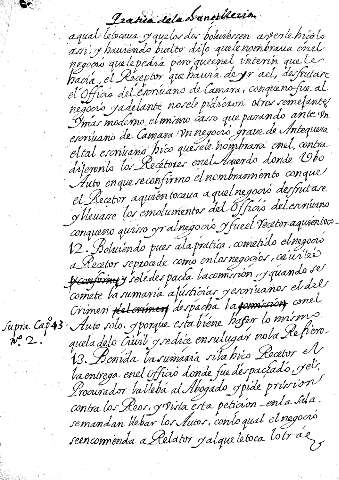 Pratica de la Chancilleria
a qual le tocava, y que los dos bolviessen a verle hiçolo
assi, y haviendo buelto dijo que le nombrava en el
negocio que le pedia pero que en el interin que le
hacia, el Receptor que havia de yr a el, desfrutase
el Officio del escrivano de Camara, con que no fue al
negocio y adelante no se le pidieron otros semejantes
Y mas moderno el mismo caso que pasando ante Un
escrivano de Camara Un negocio grave de Antequera
el tal escrivano hiço que se le nombrara en el, contra
dijeronlo los Recetores en el Acuerdo donde Ubo
Auto en que se confirmo el nombramiento con que
el Recetor a quien tocava aquel negocio desfrutase
y llevase los emolumentos del Officio del escrivano
con que no quiso yr al negocio y fue el Recetor a quien toco
12. Bolviendo pues a la pratica, cometido el negocio
a Recetor se procede como en los negocios, ceviles
y se le despacha la comission, y quando se
comete la sumaria a justicias, y escrivanos el del
Crimen despacha la comission con el
Auto solo, y porque esta bien hacer lo mismo
que la de lo Civil y se dice en su lugar no la Refiero
Supra Capº 43
nº 2.
13. Benida la sumaria si la hiço Recetor el
la entrega en el Officio donde fue despachado, y el
Procurador la lleba al Abogado y pide prission
contra los Reos, y vista esta peticion en la Sala
se mandan llebar los Autos, con lo qual el negocio
se encomienda a Relator y al que le toca lo trae